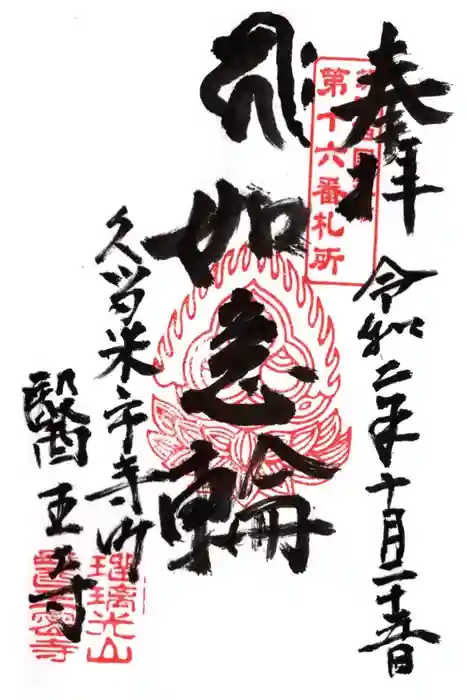 奉拝
第十六番札所
令和二年十月二十五日
𑖮𑖿𑖨𑖱𑖾
如意輪
久留米市寺町
醫王寺
瑠璃光山
醫王寺